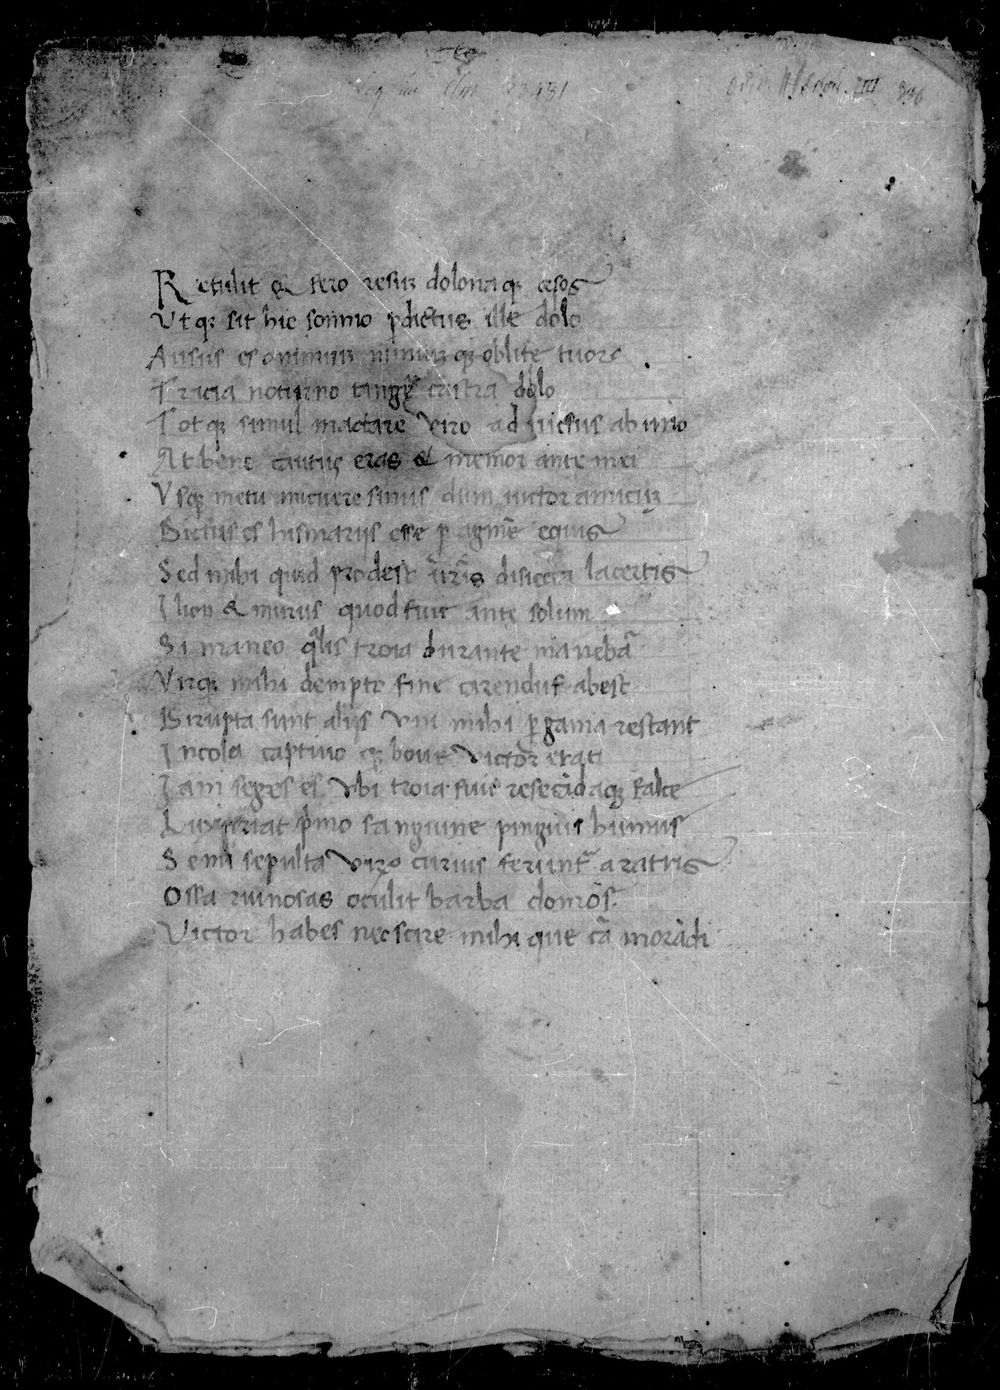 clm 23481
Retulit & fero resum dolonaq; cesos
Vt q; sit hic somno pdictus ille dolo
Ausus es o nimium nimium q; oblite tuorc
Tracia noturno tangẽ castra dolo
Tot q; simul mactare viro ad uictus ab uno
At bene cautus eras & memor ante mei
Vsq; metu micuere sinus dum uictor amicum
Dictus es hismariis esse p agmẽ equis
Sed mihi quid prodest ur̃is disiecta lacertis
Ilion & murus quod fuit ante solum
Si maneo qlis troia durante manebã
Virq; mihi dempto fine carenduf abest
Dirupta sunt aliis vni mihi pgama restant
Incola captiuo q; boue victor erati
Iam seges es vbi troia fuit resecãdaq; falce
Luxuriat pino sanguine pinguis humus
Semi sepulta viro curius feriunt aratris
Ossa ruinosas oculit barba domos.
Victor habes nec scire mihi que cã morãdi